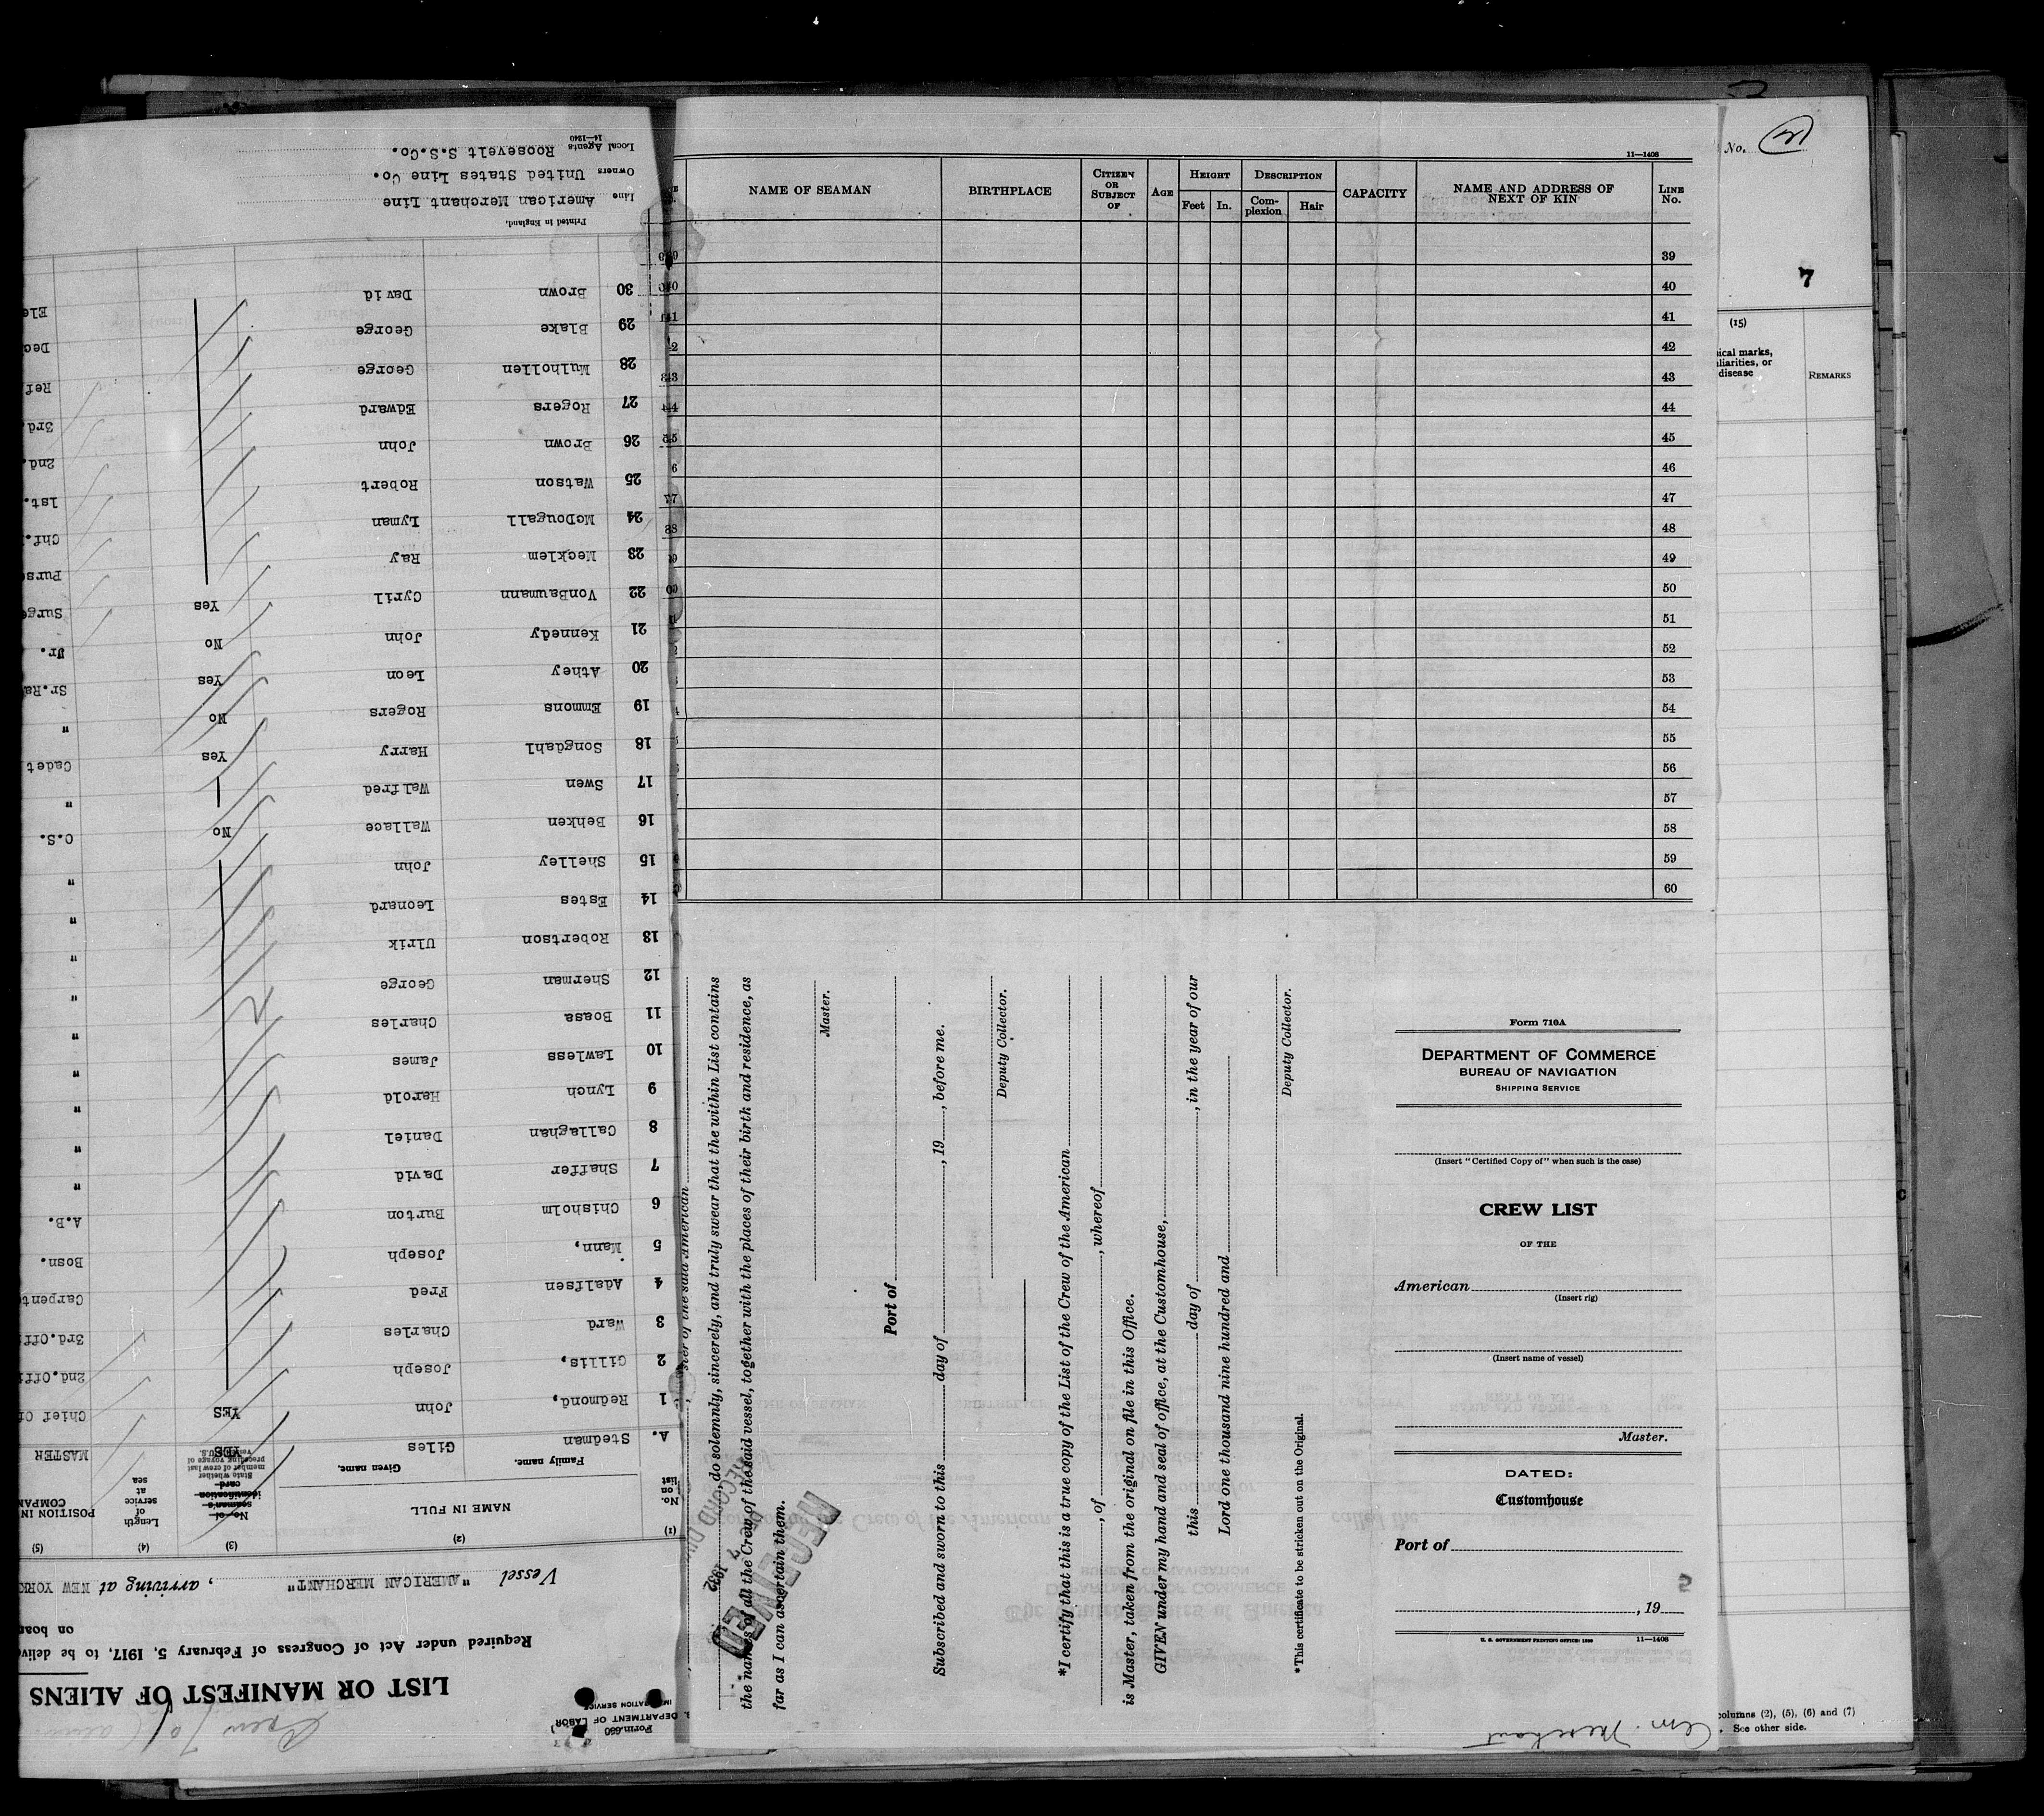 No. 3
7
(15)
ical marks,
liarities, or
disease
REMARKS
columns (2), (5), (6) and (7)
See other side.
11—1408
NAME OF SEAMAN
BIRTHPLACE
CITIZEN OR SUBJECT OF
AGE
HEIGHT
Feet In.
DESCRIPTION
Com-plexion Hair
CAPACITY
NAME AND ADDRESS OF NEXT OF KIN
LINE No.
39
40
41
42
43
44
45
46
47
48
49
50
51
52
53
54
55
56
57
58
59
60
ster of the said American
, do solemnly, sincerely, and truly swear that the within List contains
the names of all the Crew of the said vessel, together with the places of their birth and residence, as
far as I can ascertain them.
Master.
Port of
Subscribed and sworn to this day of , 19 , before me.
Deputy Collector.
*I certify that this is a true copy of the List of the Crew of the American
, of , whereof
is Master, taken from the original on file in this Office.
GIVEN under my hand and seal of office, at the Customhouse,
this day of , in the year of our
Lord one thousand nine hundred and
Deputy Collector.
*This certificate to be stricken out on the Original.
RECEIVED
1932
RECORD DIV
Form 710A
DEPARTMENT OF COMMERCE
BUREAU OF NAVIGATION
SHIPPING SERVICE
(Insert "Certified Copy of" when such is the case)
CREW LIST
OF THE
American
(Insert rig)
(Insert name of vessel)
Master.
DATED:
Customhouse
Port of
, 19
U. S. GOVERNMENT PRINTING OFFICE: 11—1408
Am. Merchant
Form 680
DEPARTMENT OF LABOR
IMMIGRATION SERVICE
LIST OR MANIFEST OF ALIENS
Required under Act of Congress of February 5, 1917, to be delive
on boa
Vessel "AMERICAN MERCHANT" , arriving at NEW YORK
(1) (2) (3) (4) (5)
No. on list
NAME IN FULL
Family name. Given name.
No. of seaman's identification card
State whether member of crew last preceding voyage of vessel to U.S.
Length of service at sea
POSITION IN COMPAN
A. Stedman Giles YES MASTER
1 Redmond, John YES Chief Of
2 Gillis, Joseph 2nd.Off
3 Ward Charles 3rd.Off
4 Adalfsen Fred Carpent
5 Mann, Joseph Bosn.
6 Chisholm Burton A.B.
7 Shaffer David "
8 Callaghan Daniel "
9 Lynch Harold "
10 Lawless James "
11 Boasa Charles "
12 Sherman George "
13 Robertson Ulrik "
14 Estes Leonard "
15 Shelley John "
16 Behken Wallace No O.S.
17 Swen Walfred "
18 Songdahl Harry Yes Cadet
19 Emmons Rogers No "
20 Athey Leon Yes Sr.Ra
21 Kennedy John No Jr.
22 VonBaumann Cyril Yes Surge
23 Mecklem Ray Purse
24 McDougall Lyman Chf.
25 Watson Robert 1st.
26 Brown John 2nd.
27 Rogers Edward 3rd.
28 Mulhollen George Ref.
29 Blake George Dec
30 Brown David Ele
Printed in England.
Line American Merchant Line
Owners United States Line Co.
Local Agents Roosevelt S.S.Co.
14—1240